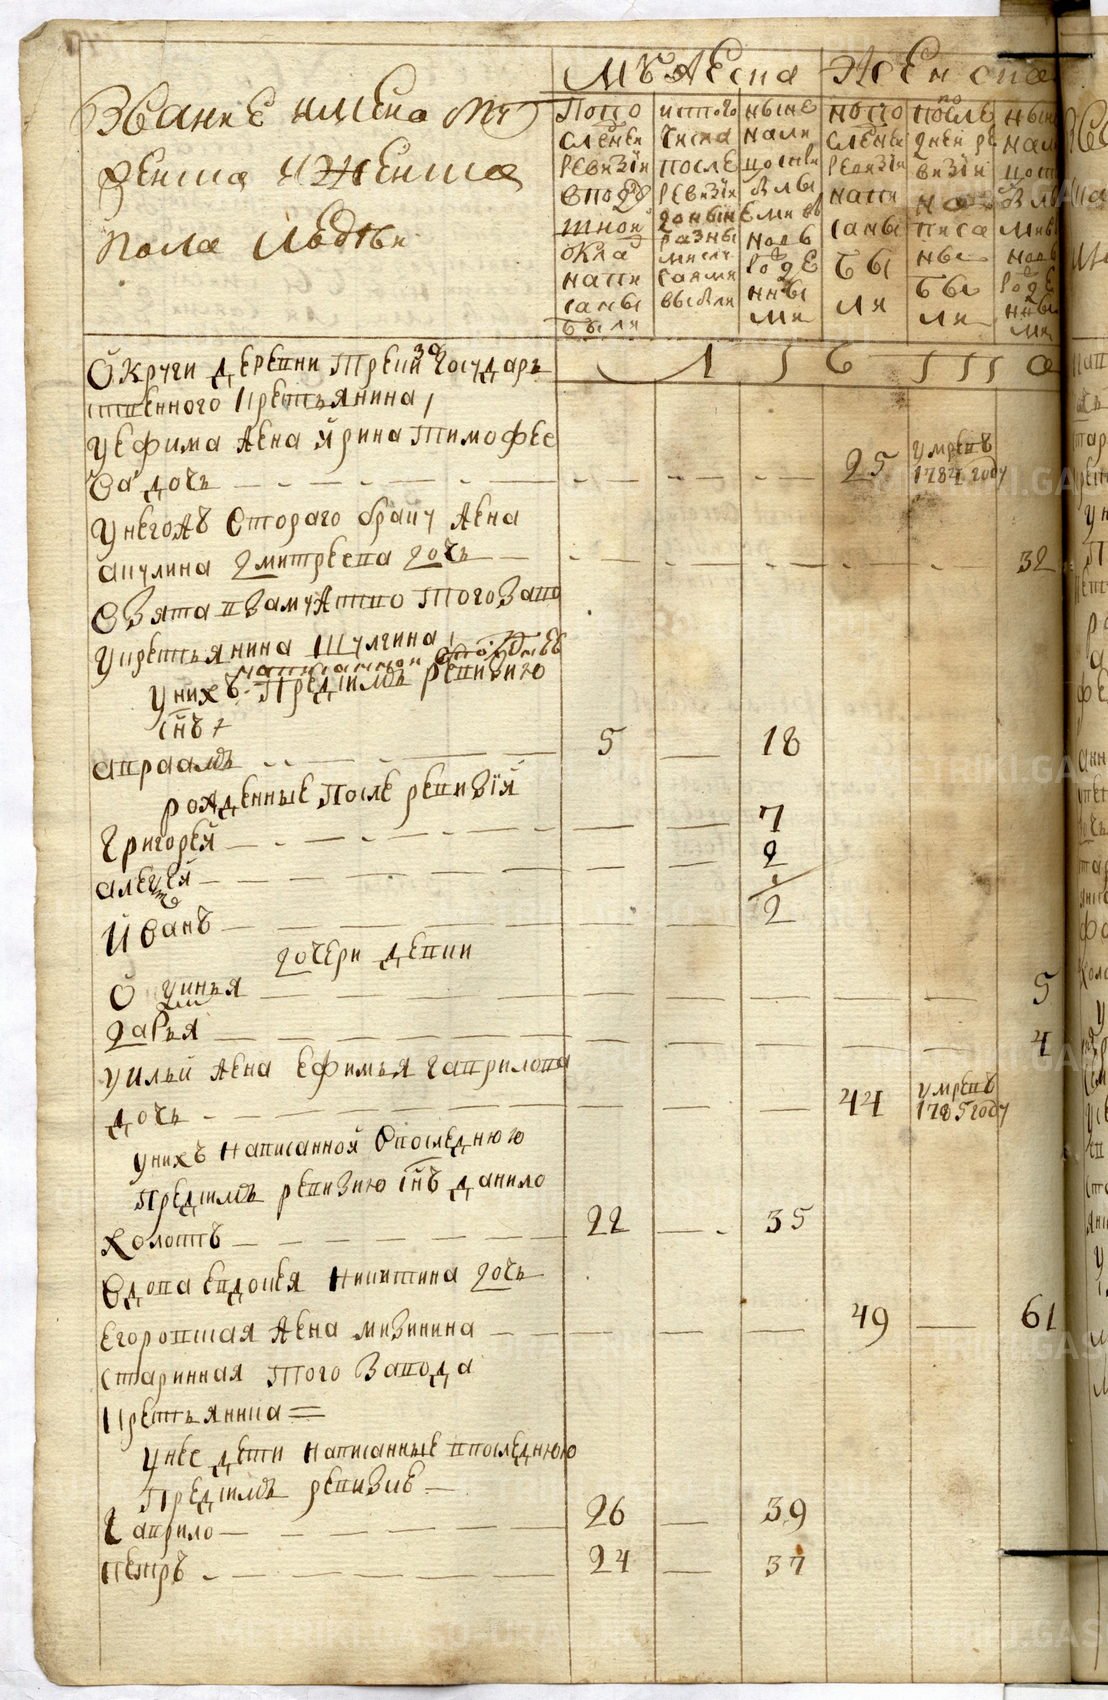 Звание имена му
жеска и женска
пола людьми
мужеска
женска
По по
следней
ревизии
в подд
шной
окла
написа
саны
были
ис того
числа
после
ревизии
доныне
разны
ми слу
чаями
выбыли
ныне
нали
цо живы
з ново
рожде
нны
ми
по по
следней
ревизии
напи
саны
бы
ли
после
дней ре
визии
на
писа
ны
бы
ли
лета
округи деревни государ
ственного крестьянина
у Ефима жена Ирина Тимофее
ва дочь 25 умре въ 1784 году
у него жъ второго браку жена
Акулина Дмитрева дочь 32
взята в замужство того заво
у крестьянина Шулгина
у нихъ написанной пред симъ ревизию
снъ
Авраамъ 5 18
рожденные после ревизий
Григорей 7
Алексей 2
Иванъ 2
дочери девки
5
Дарья 4
у Ильи жена Ефимья Гаврилова
дочь 44 умре въ 1785 году
у нихъ написанной в последнюю
пред симъ ревизию снъ Данило
холостъ 22 35
вдова Евдокья Никитина дочь
Егоровская жена Мизинина 49 61
старинная того завода
крестьянка
у нее дети написанные в последнюю
пред симъ ревизие
Гаврило 26 39
Петръ 24 37